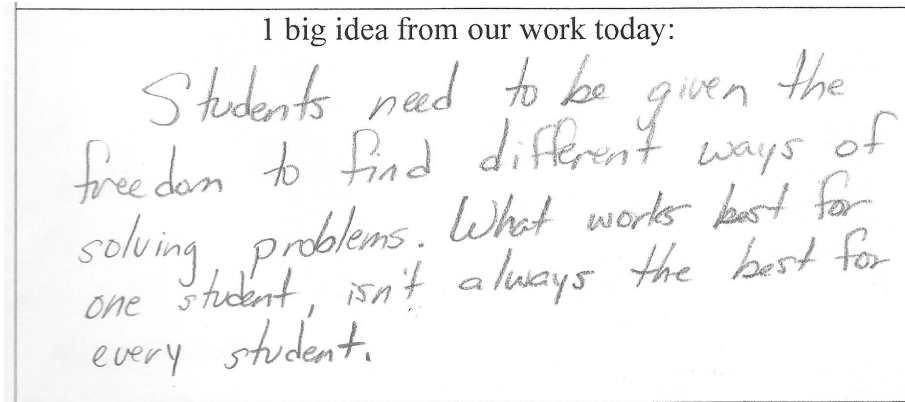 1 big idea from our work today:
Students need to be given the
freedom to find different ways of
solving problems. What works best for
one student, isn't always the best for
every student.